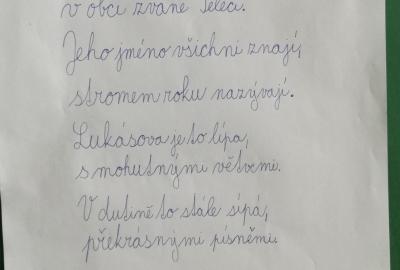 v obci zvané Telecí.
Jeho jméno všichni znají,
stromem roku nazývají.
Lukásova je to lípa,
s mohutnými větvemi.
V dutině to stále sípá,
překrásnými písněmi.